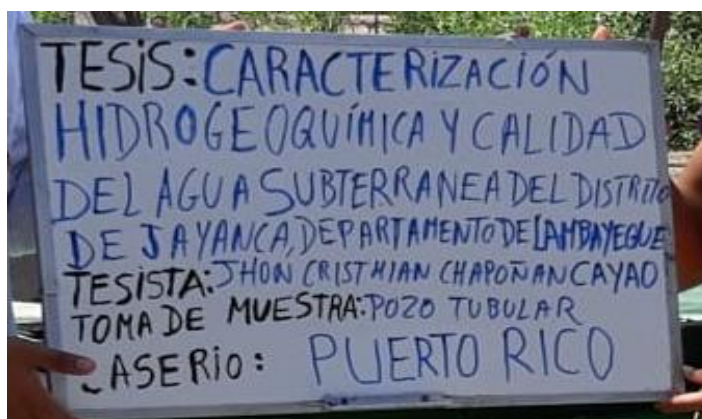 TESIS: CARACTERIZACIÓN
HIDROGEOQUÍMICA Y CALIDAD
DEL AGUA SUBTERRANEA DEL DISTRITO
DE JAYANCA, DEPARTAMENTO DE LAMBAYEQUE
TESISTA: JHON CRISTHIAN CHAPOÑAN CAYAO
TOMA DE MUESTRA: POZO TUBULAR
CASERIO: PUERTO RICO